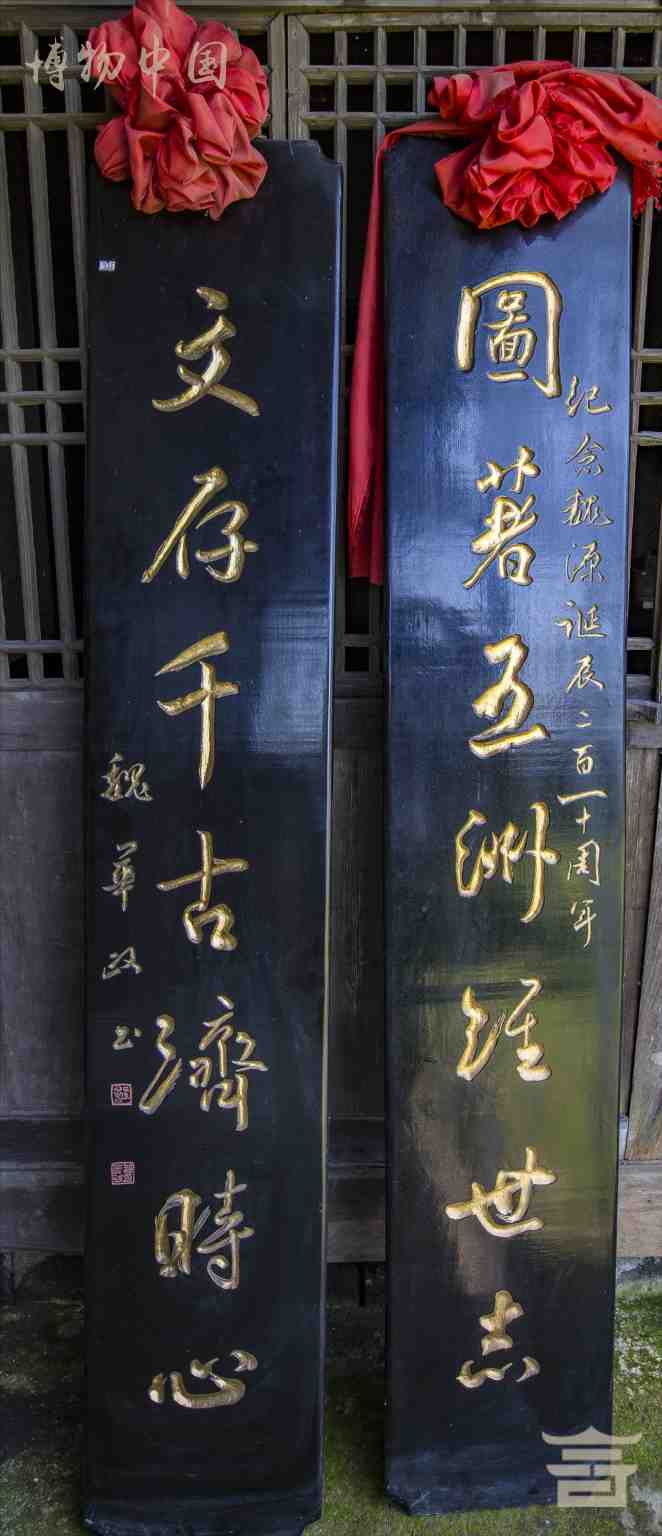 博物中国
紀念魏源誕辰二百一十周年
圖著五洲經世志
文存千古濟時心
魏華政書